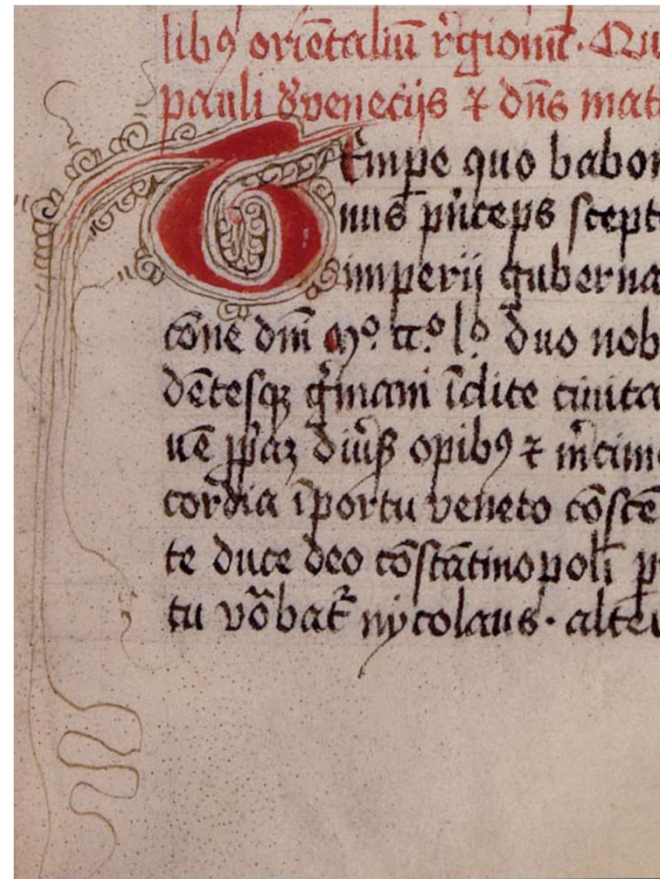 libꝰ oriētaliū rͤgionū. Qu
pauli de venecijs ⁊ dn̄s mat
Tēmpe quo
nus pͥnceps scept
imperij guberna
cōne dn̄i mͦ. ccͦ. lͦ. duo nob
dētesqꝫ gͤmani īclite ciuita
uē ꝓpͥaꝫ diuͥsꝭ opibꝰ ⁊ mͤcimo
cordia ī portu veneto cōscē
te duce deo cōstātinopolī p
tu vōbatͬ nycolaus. alter